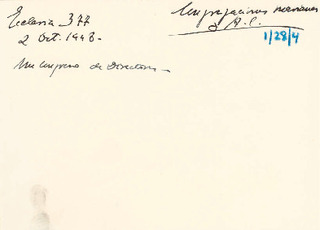 Ecclesia 377
2 Oct. 1948.-
Un Congreso de Directores.-
Congregaciones marianas
y A.C.
1/28/4